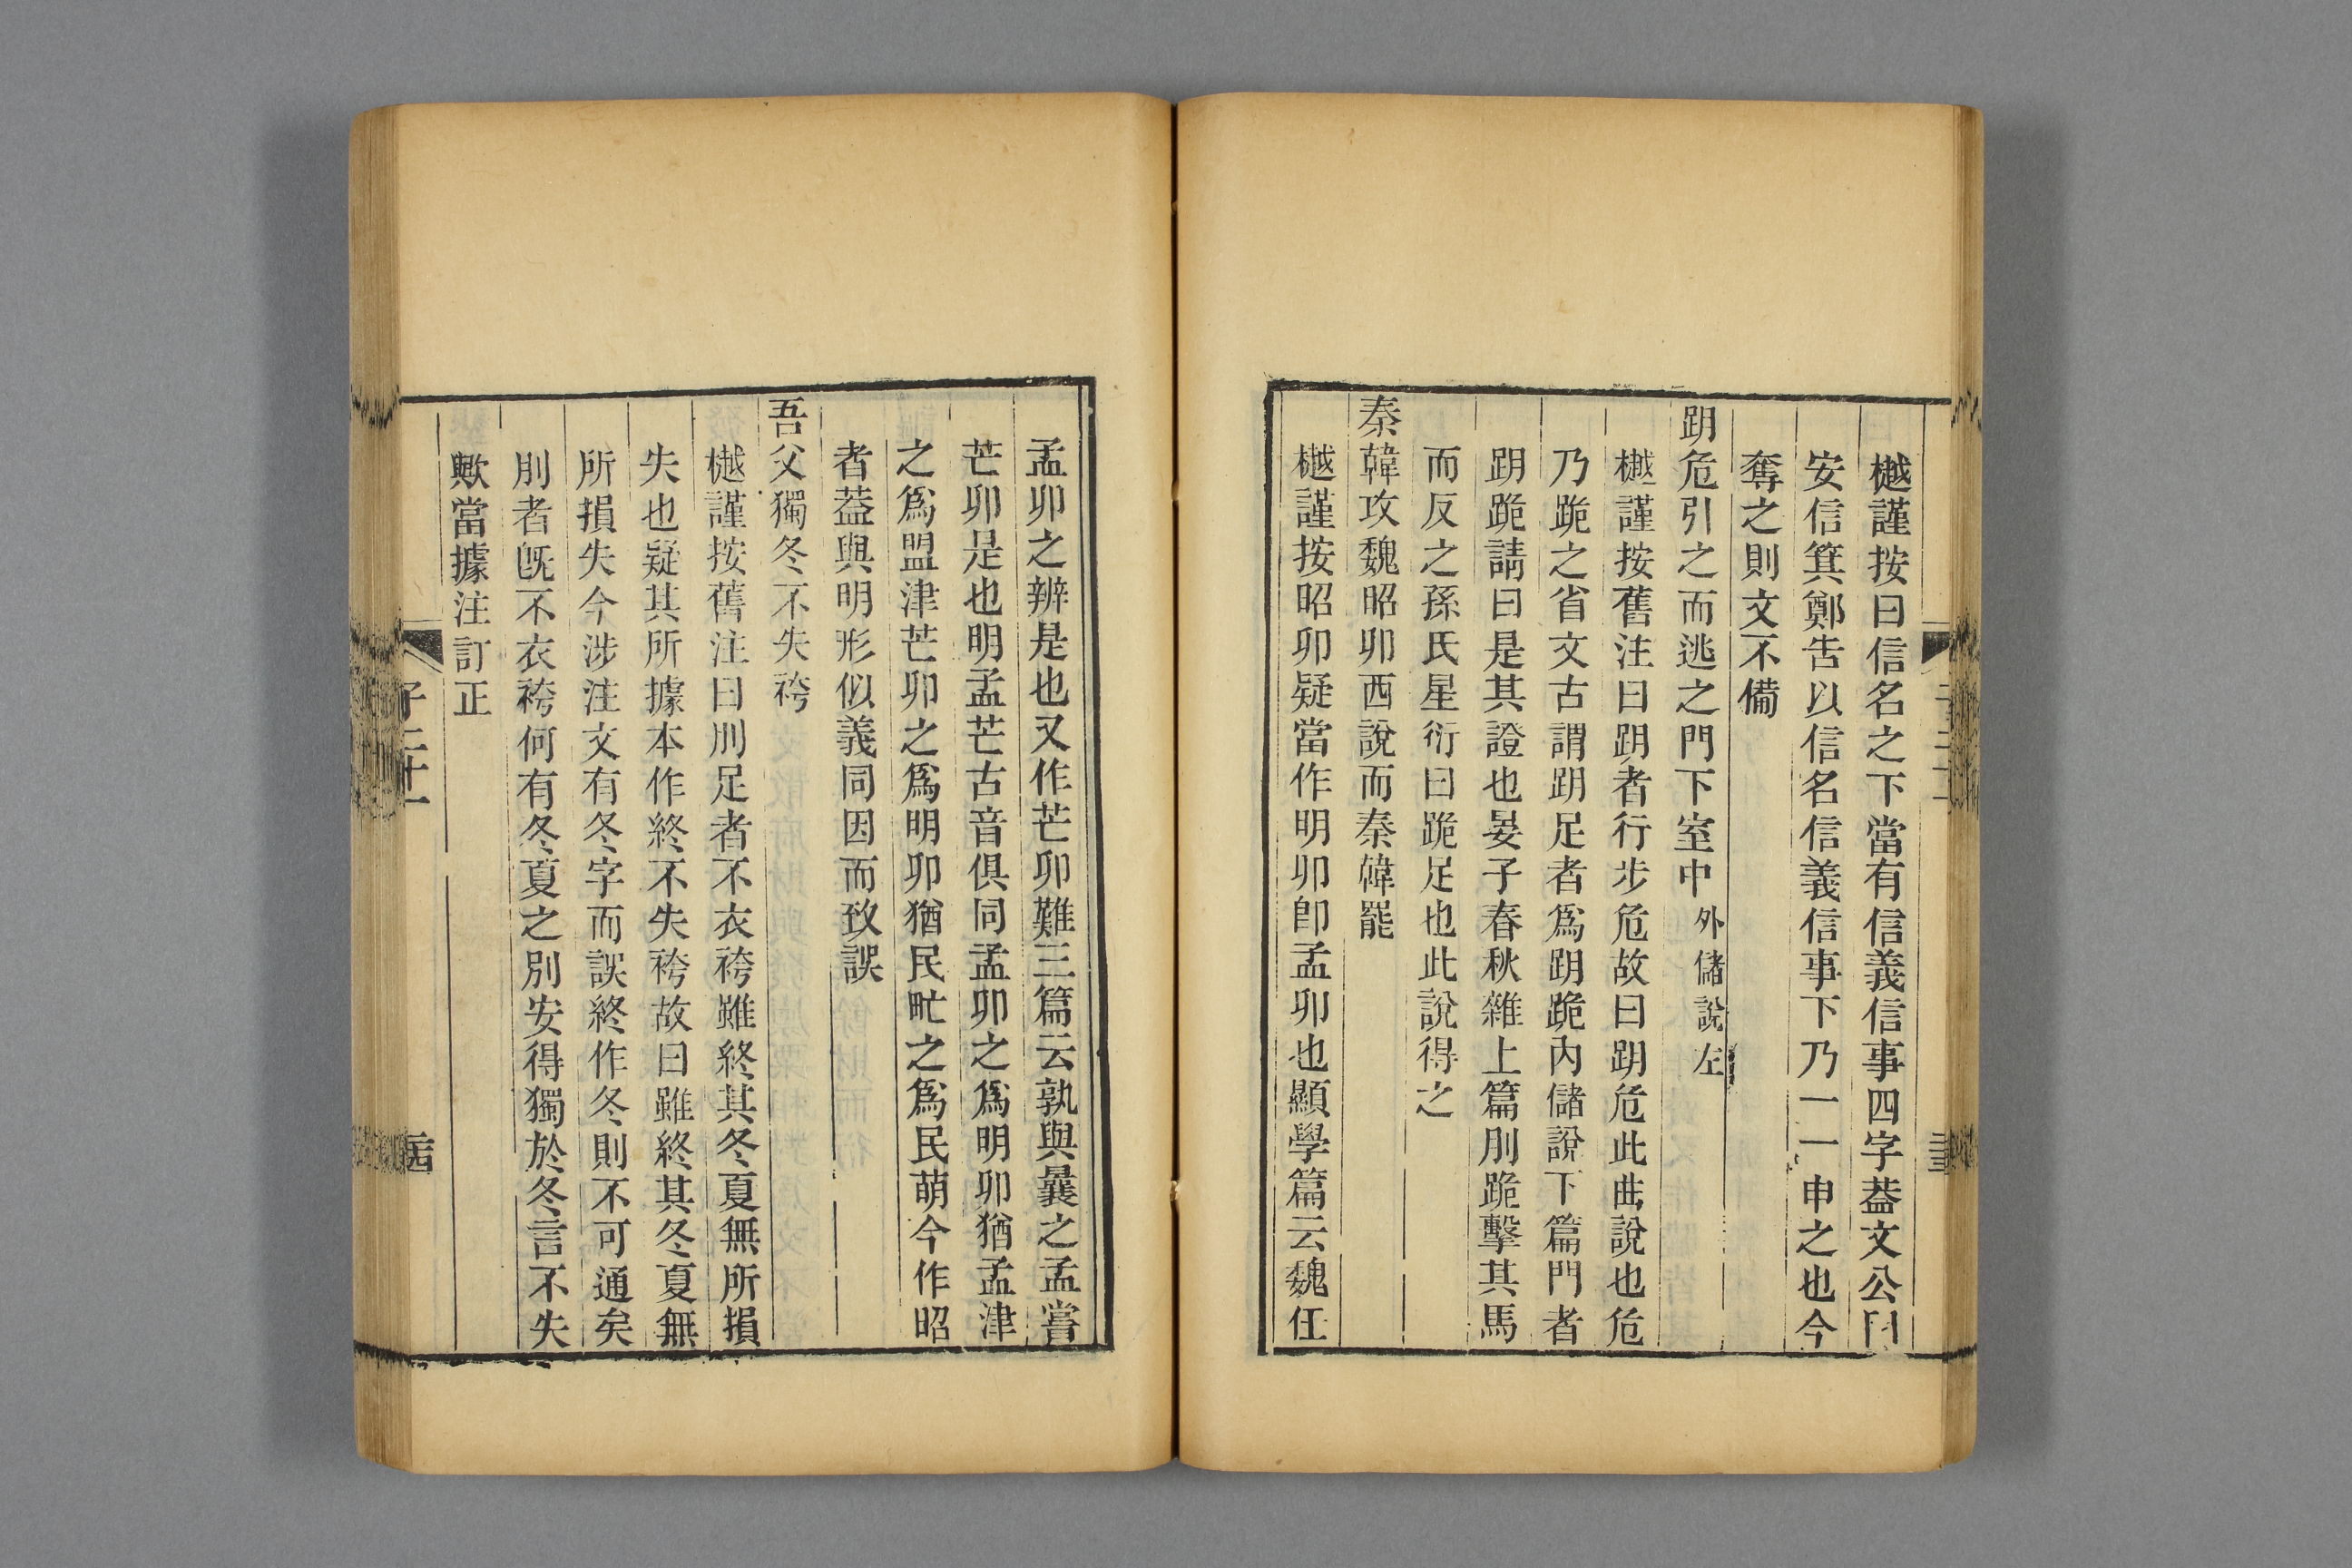 樾謹按曰信名之下當有信義信事四字蓋文公問
安信箕鄭告以信名信義信事下乃一一申之也今
奪之則文不備
跀危引之而逃之門下室中外儲說左
樾謹按舊注曰跀者行步危故曰跀危此曲說也危
乃跪之省文古謂跀足者爲跀跪內儲說下篇門者
跀跪請曰是其證也晏子春秋雜上篇刖跪擊其馬
而反之孫氏星衍曰跪足也此說得之
秦韓攻魏昭卯西說而秦韓罷
樾謹按昭卯疑當作明卯卽孟卯也顯學篇云魏任
孟卯之辨是也又作芒卯難三篇云孰與曩之孟嘗
芒卯是也明孟芒古音俱同孟卯之爲明卯猶孟津
之爲盟津芒卯之爲明卯猶民甿之爲民萌今作昭
者蓋與明形似義同因而致誤
吾父獨冬不失袴
樾謹按舊注曰刖足者不衣袴雖終其冬夏無所損
失也疑其所據本作終不失袴故曰雖終其冬夏無
所損失今涉注文有冬字而誤終作冬則不可通矣
刖者旣不衣袴何有冬夏之別安得獨於冬言不失
歟當據注訂正
子二十一